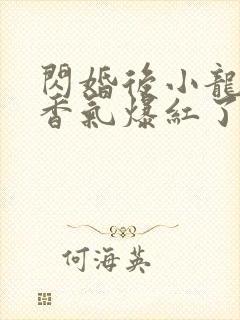 閃婚後小龍
香氣爆紅了
何海英